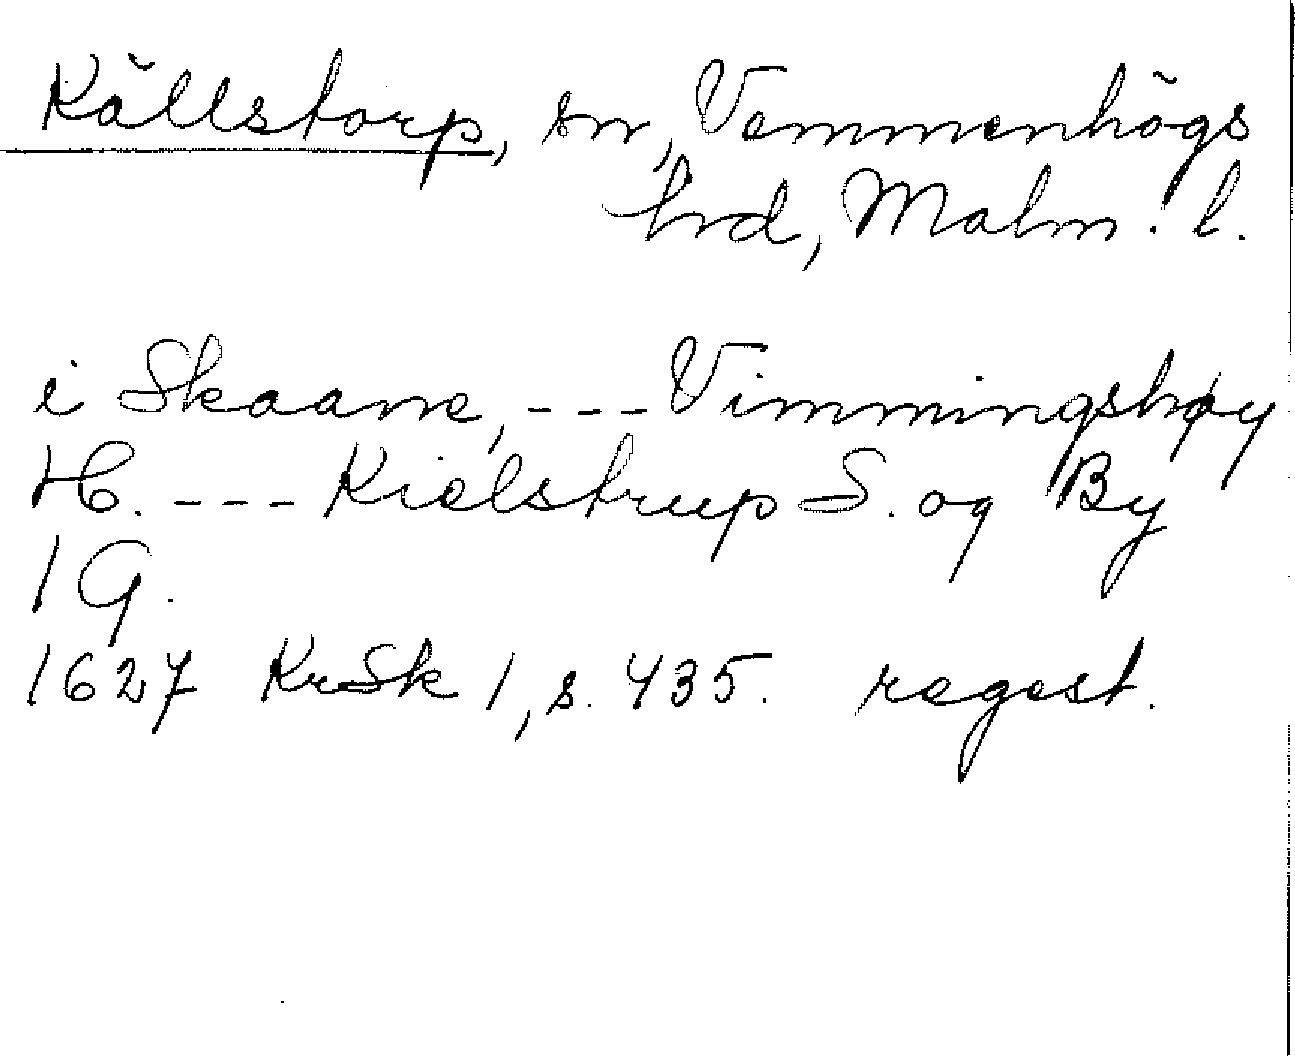 Källstorp, sn, Vemmenhögs
hrd, Malm. l.
i Skaane, --- Vimmingshøy
H. --- Kielstrup S. og By
1 G.
1627 KrSk 1, s. 435. regest.